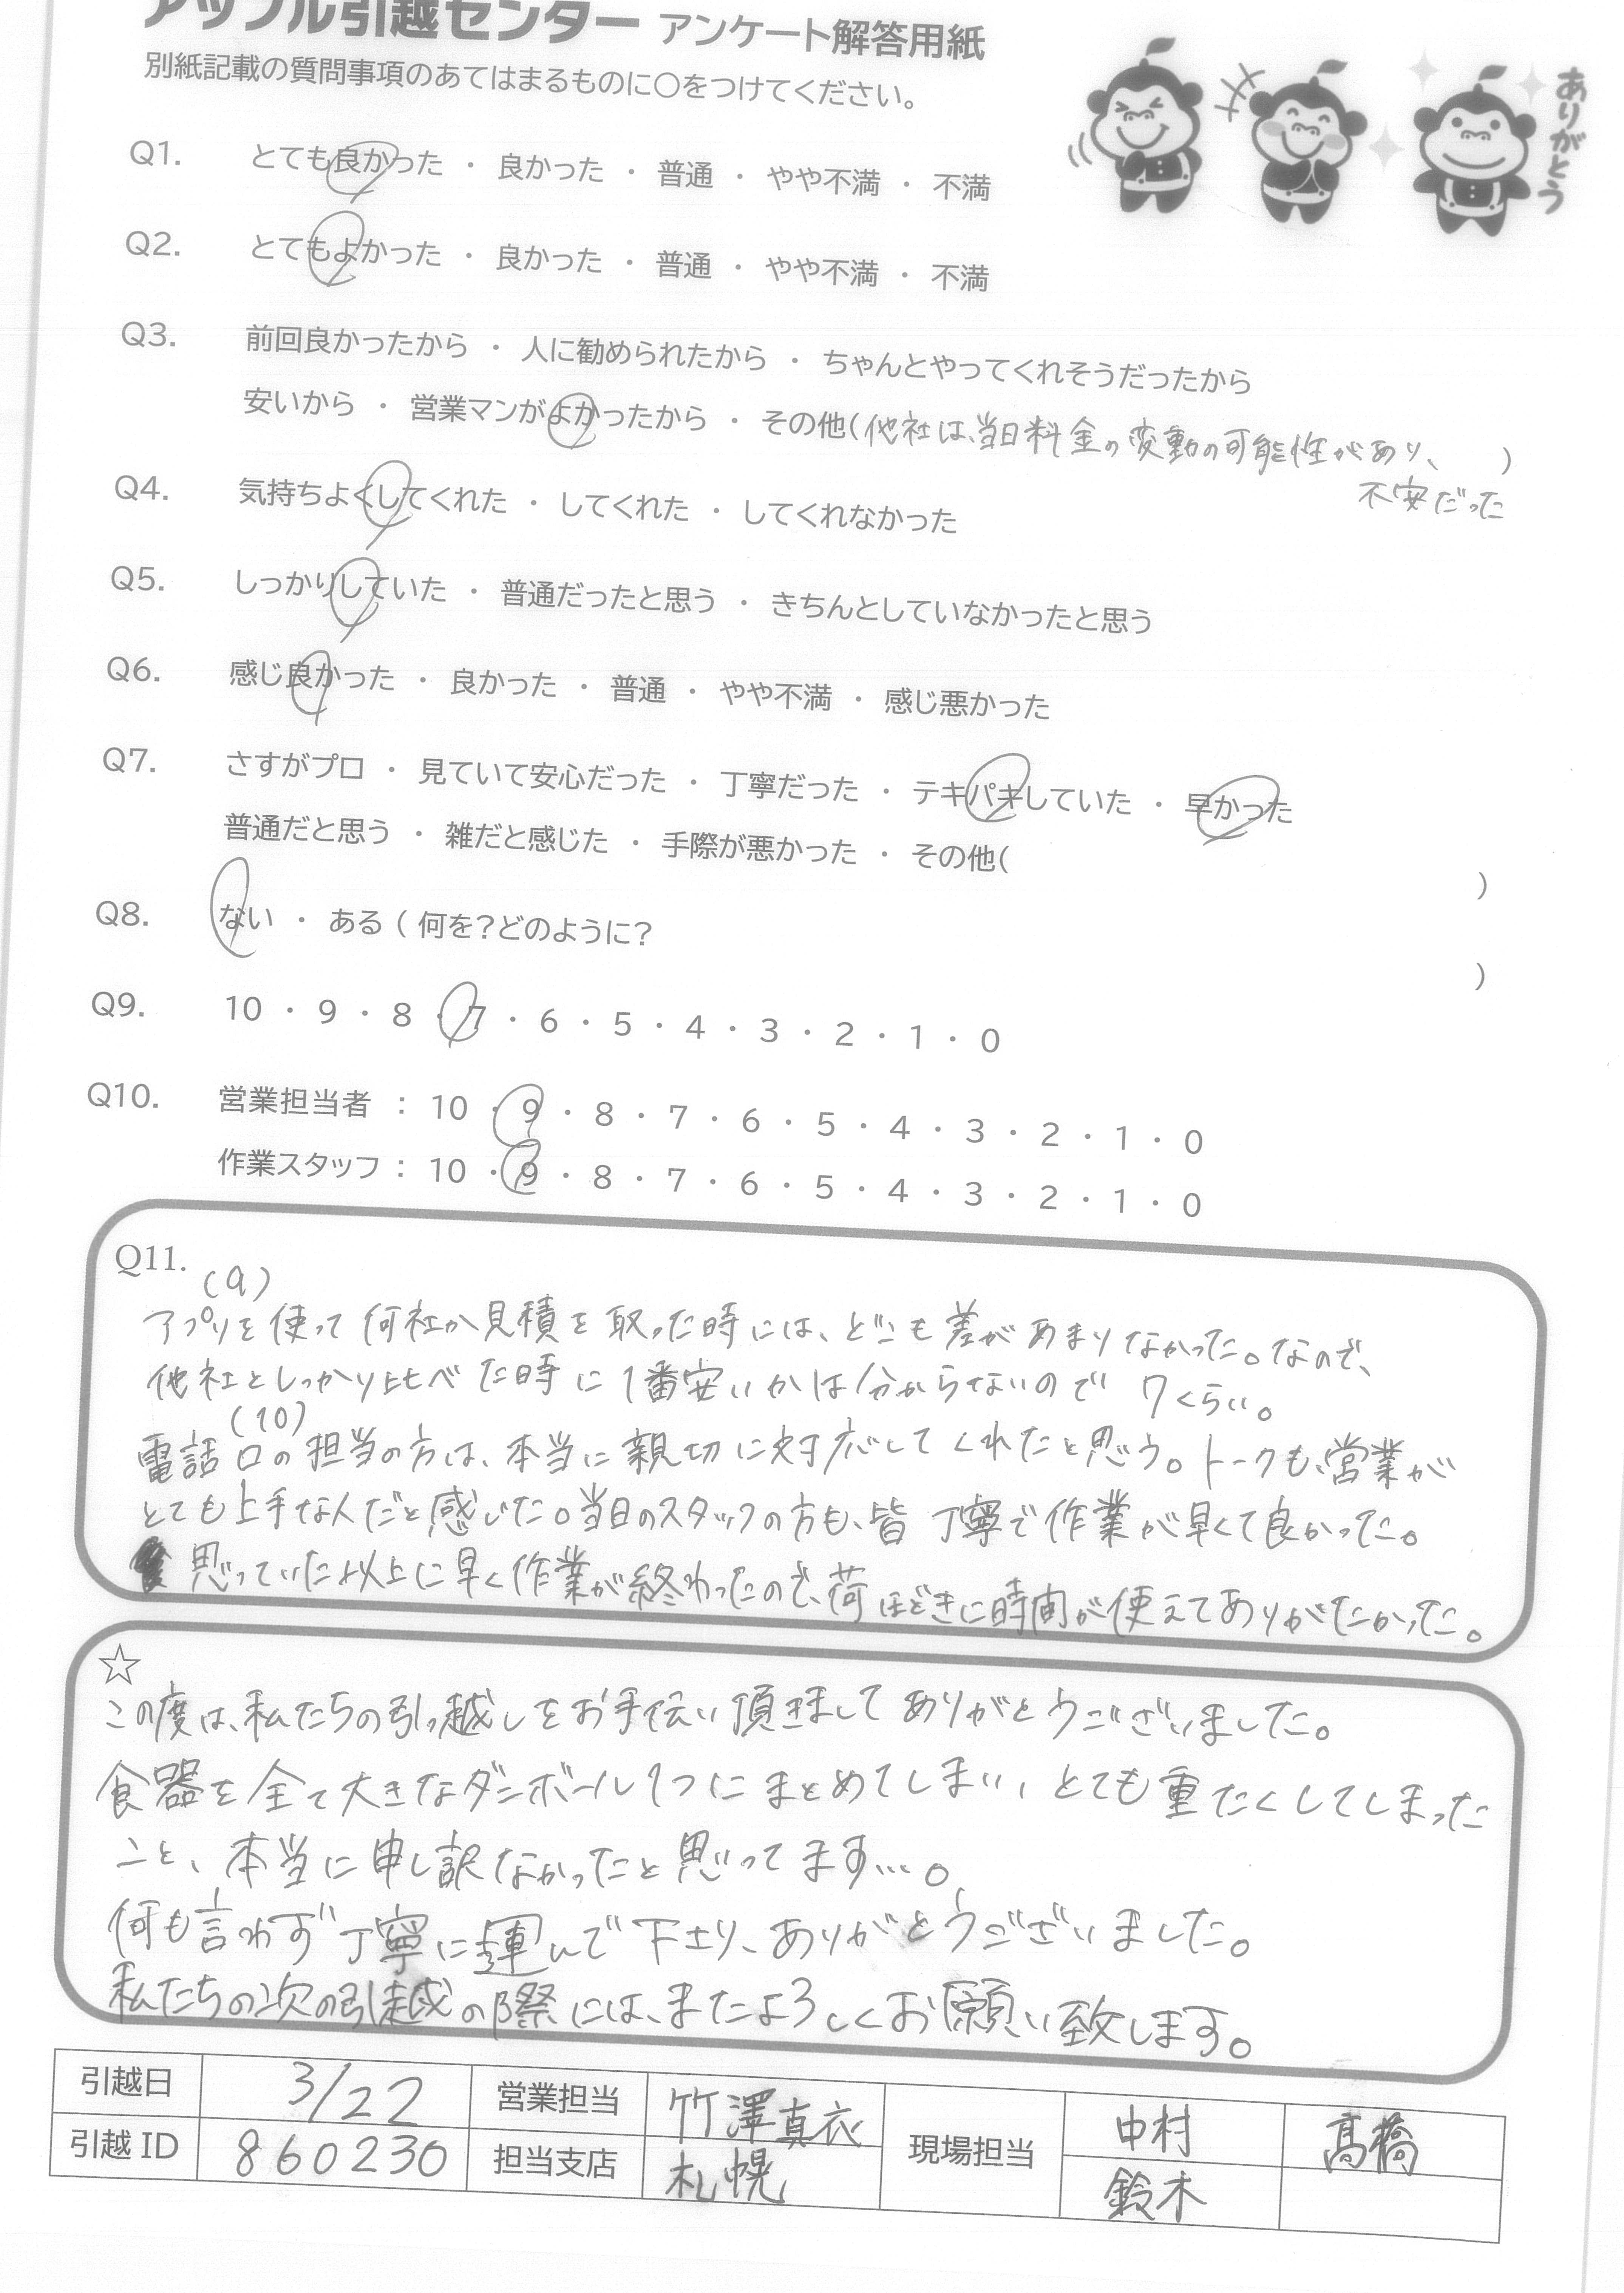 アップル引越センター アンケート解答用紙
別紙記載の質問事項のあてはまるものに○をつけてください。
ありがとう
Q1. とても良かった ・ 良かった ・ 普通 ・ やや不満 ・ 不満
Q2. とてもよかった ・ 良かった ・ 普通 ・ やや不満 ・ 不満
Q3. 前回良かったから ・ 人に勧められたから ・ ちゃんとやってくれそうだったから
安いから ・ 営業マンがよかったから ・ その他(他社は、当日料金の変動の可能性があり、 )
不安だった
Q4. 気持ちよくしてくれた ・ してくれた ・ してくれなかった
Q5. しっかりしていた ・ 普通だったと思う ・ きちんとしていなかったと思う
Q6. 感じ良かった ・ 良かった ・ 普通 ・ やや不満 ・ 感じ悪かった
Q7. さすがプロ ・ 見ていて安心だった ・ 丁寧だった ・ テキパキしていた ・ 早かった
普通だと思う ・ 雑だと感じた ・ 手際が悪かった ・ その他( )
Q8. ない ・ ある ( 何を?どのように? )
Q9. 10 ・ 9 ・ 8 ・ 7 ・ 6 ・ 5 ・ 4 ・ 3 ・ 2 ・ 1 ・ 0
Q10. 営業担当者 : 10 ・ 9 ・ 8 ・ 7 ・ 6 ・ 5 ・ 4 ・ 3 ・ 2 ・ 1 ・ 0
作業スタッフ : 10 ・ 9 ・ 8 ・ 7 ・ 6 ・ 5 ・ 4 ・ 3 ・ 2 ・ 1 ・ 0
Q11.
(9)
アプリを使って何社か見積を取った時には、どこも差があまりなかった。なので、
他社としっかり比べた時に1番安いかは分からないので 7くらい。
(10)
電話口の担当の方は、本当に親切に対応してくれたと思う。トークも、営業が
とても上手な人だと感じた。当日のスタッフの方も、皆 丁寧で作業が早くて良かった。
思っていた以上に早く作業が終わったので、荷ほどきに時間が使えてありがたかった。
☆
この度は、私たちの引っ越しをお手伝い頂きましてありがとうございました。
食器を全て大きなダンボール1つにまとめてしまい、とても重たくしてしまった
こと、本当に申し訳なかったと思ってます…。
何も言わず丁寧に運んで下さり、ありがとうございました。
私たちの次の引越の際には、またよろしくお願い致します。
引越日 3/22 営業担当 竹澤真衣 現場担当 中村 髙橋
引越 ID 860230 担当支店 札幌 鈴木